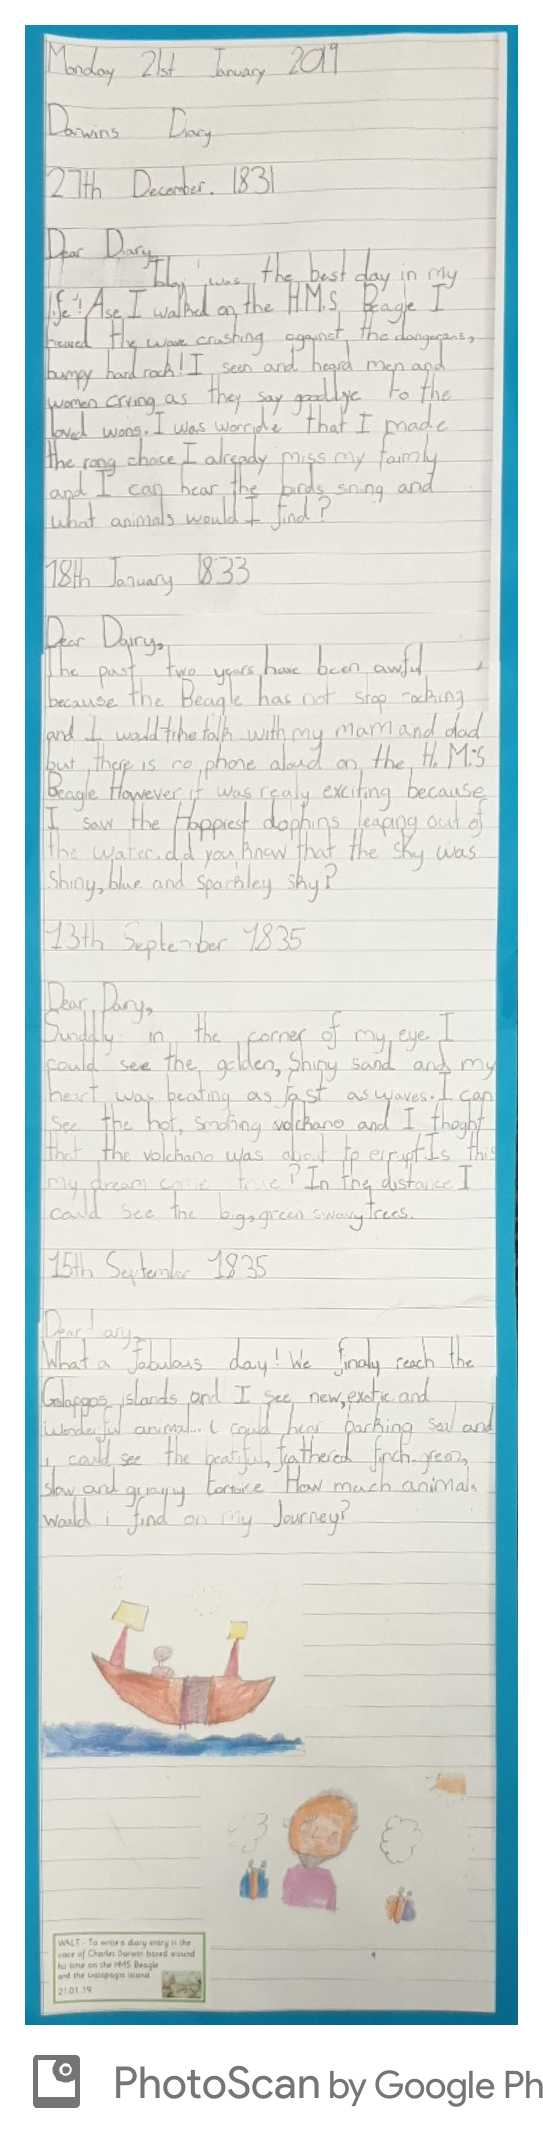 Monday 21st January 2019
Darwins Diary
27th December. 1831
Dear Diary
Today was the best day in my
life! Ase I walked on the H.M.S, Beagle I
heared the wave crashing against the dangerous,
bumpy hard rock! I seen and heard men and
women crying as they say goodbye to the
loved wons. I was worride that I made
the rong choice I already miss my faimly
and I can hear the birds sning and
what animals would I find?
18th January 1833
Dear Dairy,
The past two years have been awful
because the Beagle has not stop rocking
and I would like talk with my mam and dad
but there is no phone aloud on the H.M.S
Beagle However it was realy exciting because
I saw the Happiest dophins leaping out of
the water. did you know that the sky was
shiny, blue and sparkley sky?
13th September 1835
Dear Dary,
Sunddly in the corner of my eye I
could see the golden, shiny sand and my
heart was beating as fast as waves. I can
see the hot, smoking volchano and I thoght
that the volchano was about to errupt Is this
my dream come true? In the distance I
could see the big, green swavy trees.
15th September 1835
Dear
What a fabulous day! We finaly reach the
Galapgos islands and I see new, exotic and
wonderful animal. I could hear barking seal and
I could see the beatiful, feathered finch. green,
slow and tortoice How much animals
would i find on my Journey?
WALT - To write a diary entry in the
voice of Charles Darwin based around
his time on the HMS Beagle
and the Galapagos Island
21.01.19
PhotoScan by Google Ph